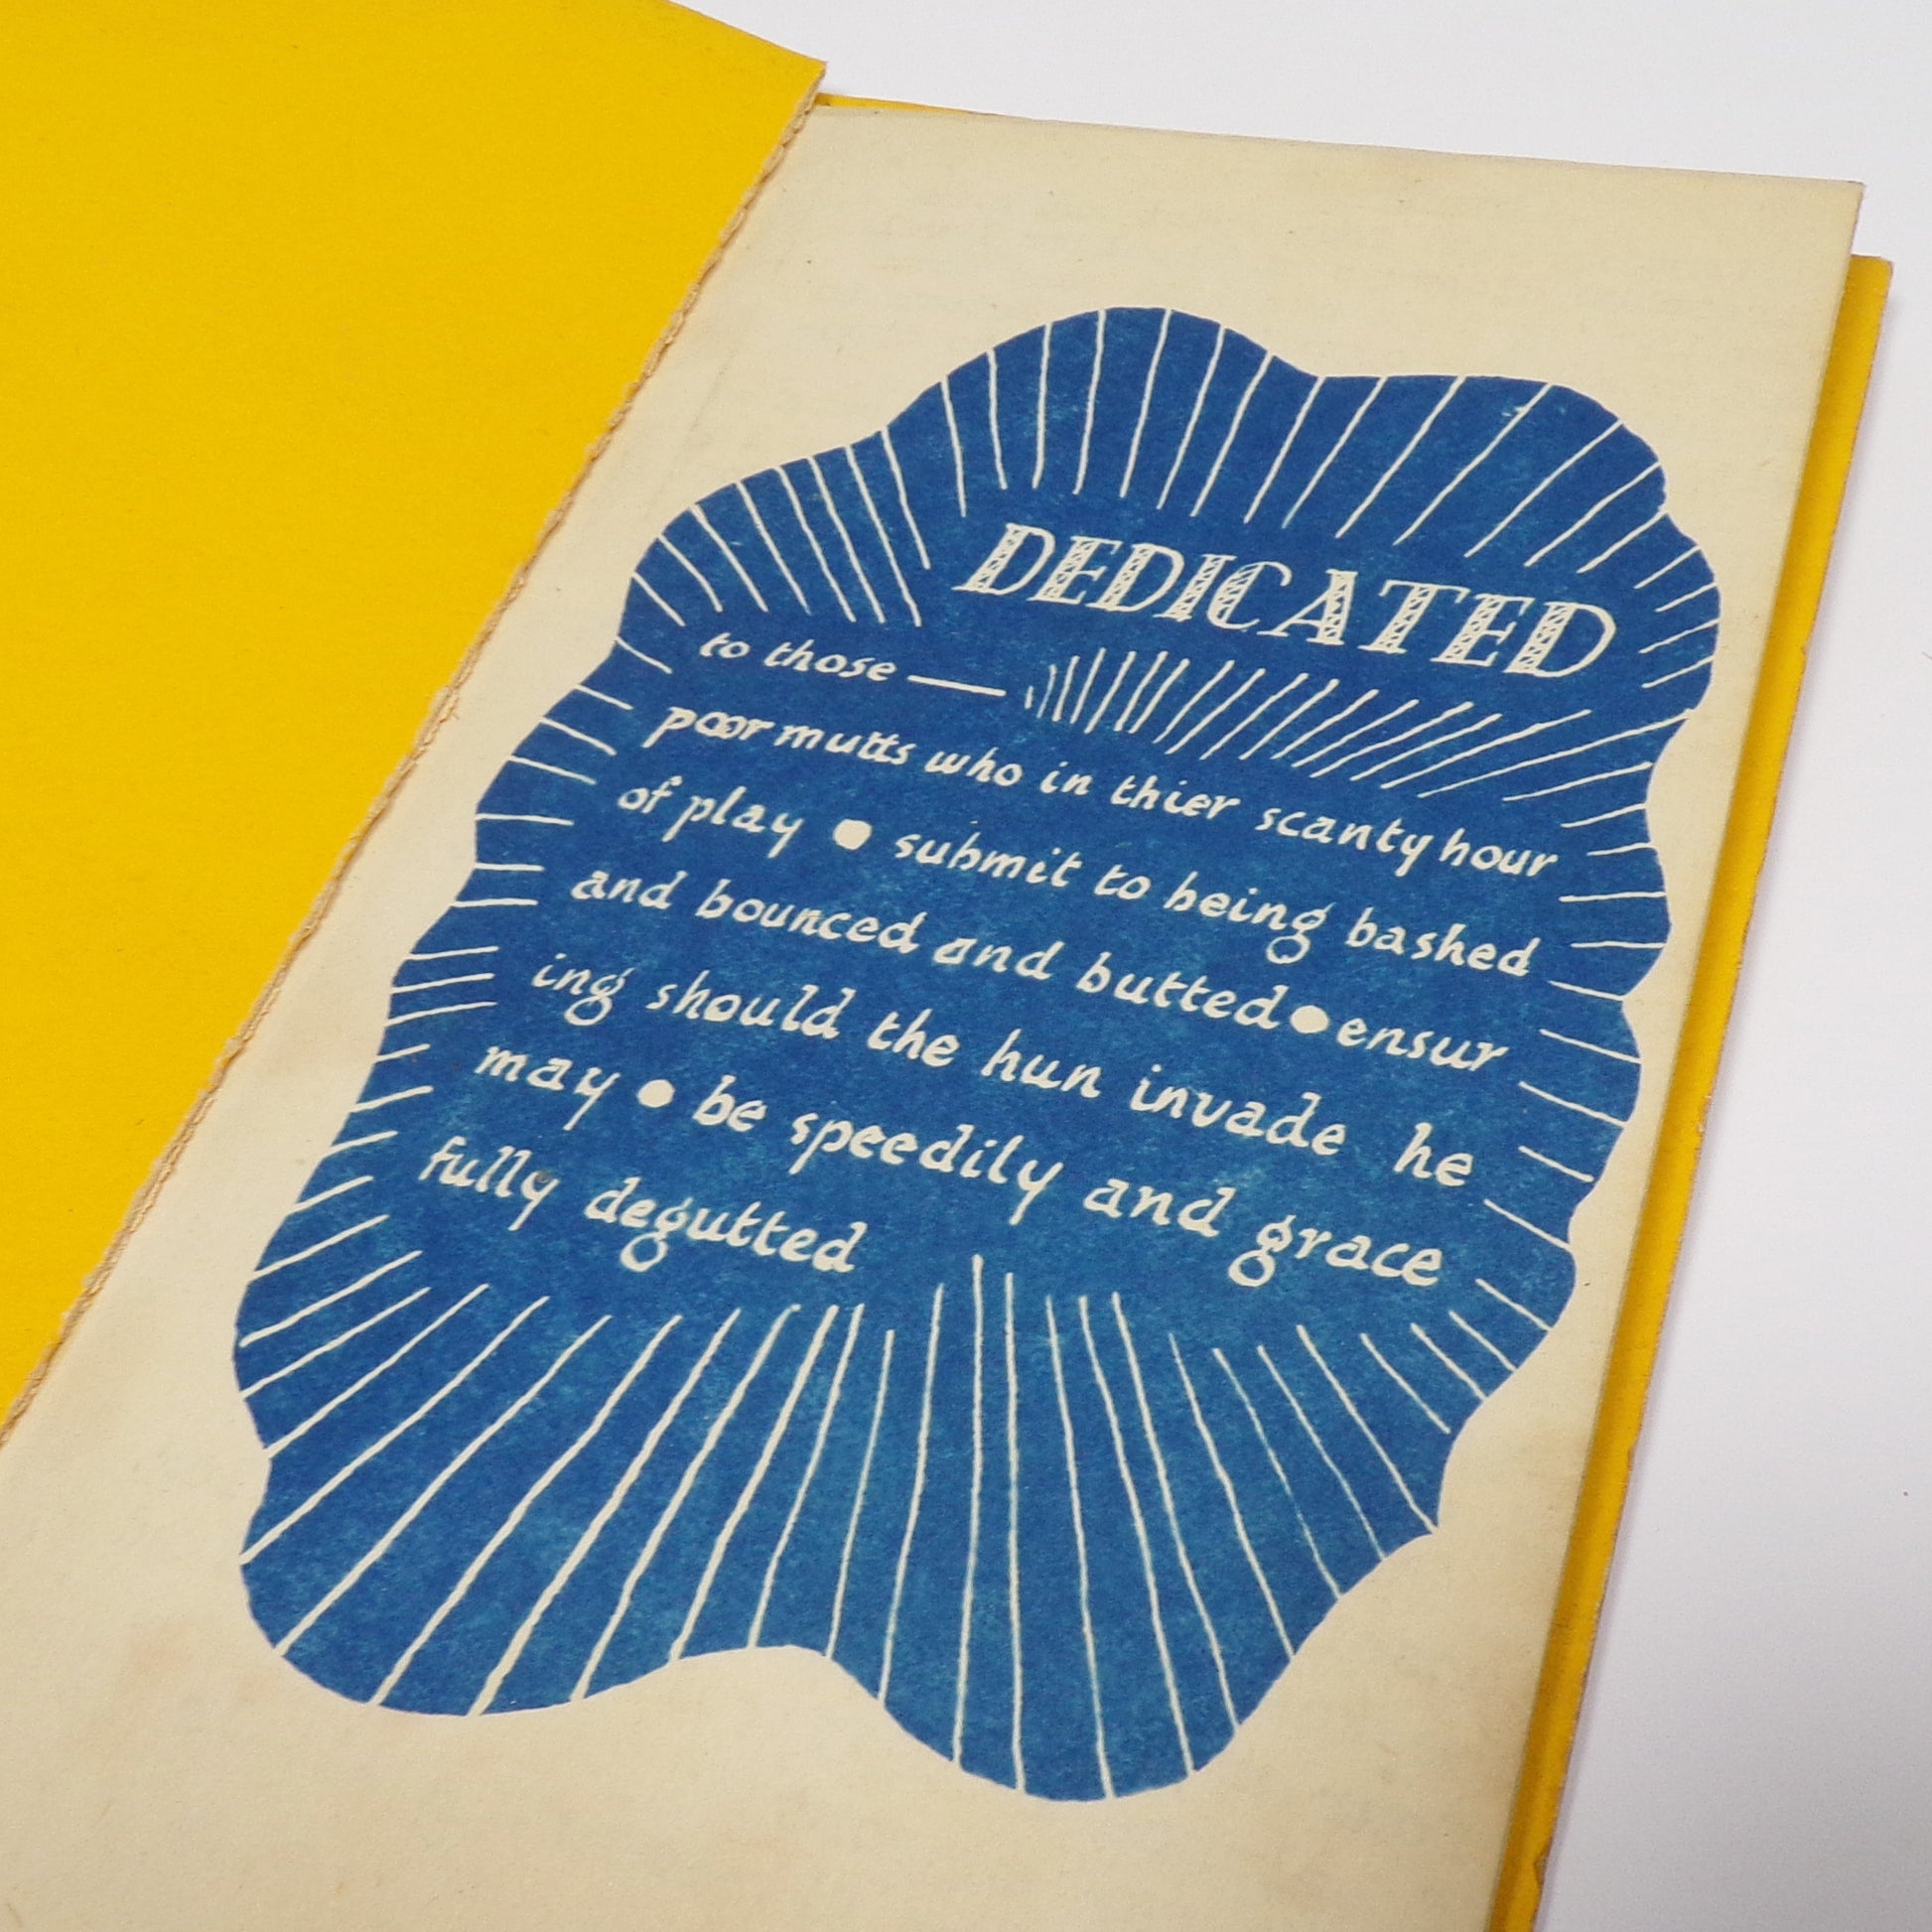 DEDICATED
to those —
poor mutts who in thier scanty hour
of play ● submit to being bashed
and bounced and butted ● ensur
ing should the hun invade he
may ● be speedily and grace
fully degutted